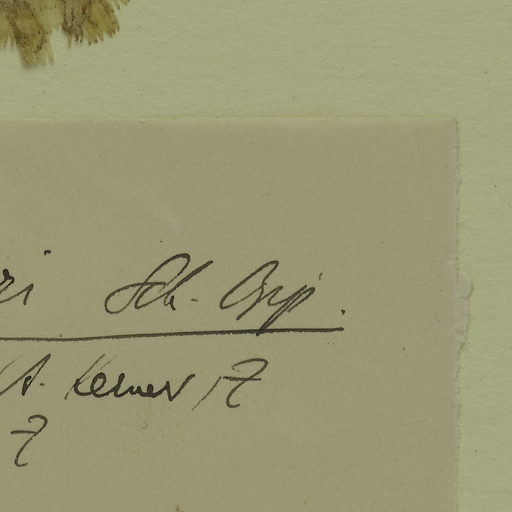 ri Sch. Bip.
A. Kerner